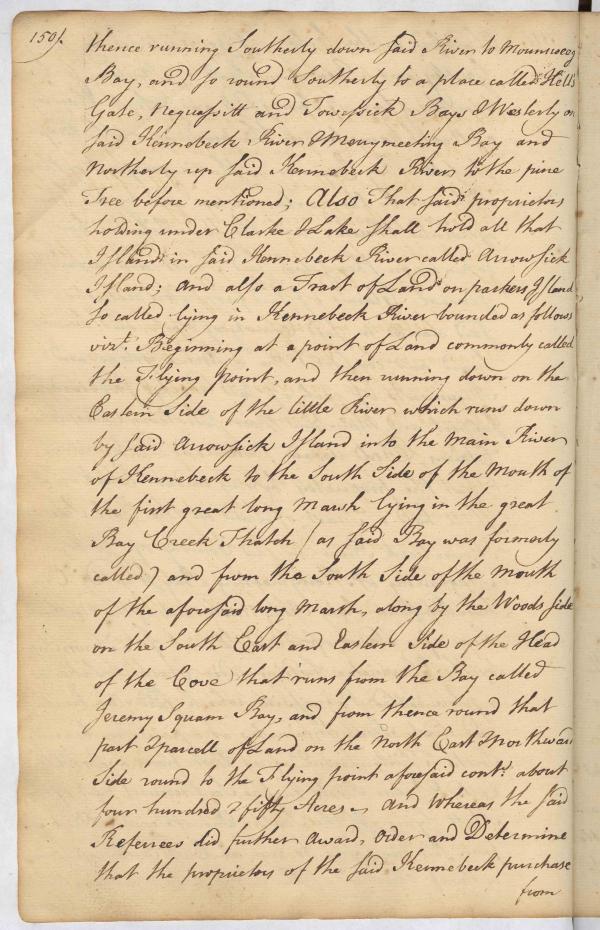 150/.
thence running Southerly down said River to Mounsweeg
Bay, and so round Southerly to a place called Hell's
Gate, Neguassitt and Towessick Bays & Westerly on
said Kennebeck River & Merrymeeting Bay and
Northerly up said Kennebeck River to the pine
Tree before mentioned; Also That said proprietors
holding under Clarke & Lake shall hold all that
Island in said Kennebeck River called Arrowsick
Island; and also a Tract of Land on parkers Island
so called lying in Kennebeck River bounded as follows
vizt. Beginning at a point of Land commonly called
the Flying point, and then running down on the
Eastern Side of the little River which runs down
by said Arrowsick Island into the main River
of Kennebeck to the South Side of the Mouth of
the first great long Marsh lying in the great
Bay Creek Thatch (as said Bay was formerly
called) and from the South Side of the Mouth
of the aforesaid long Marsh, along by the Woods side
on the South East and Eastern Side of the Head
of the Cove that runs from the Bay called
Jeremy Squam Bay, and from thence round that
part & parcell of Land on the North East & Northward
Side round to the Flying point aforesaid contg. about
four hundred & fifty Acres, And Whereas the said
Referrees did further Award, Order and Determine
that the proprietors of the said Kennebeck purchase
from